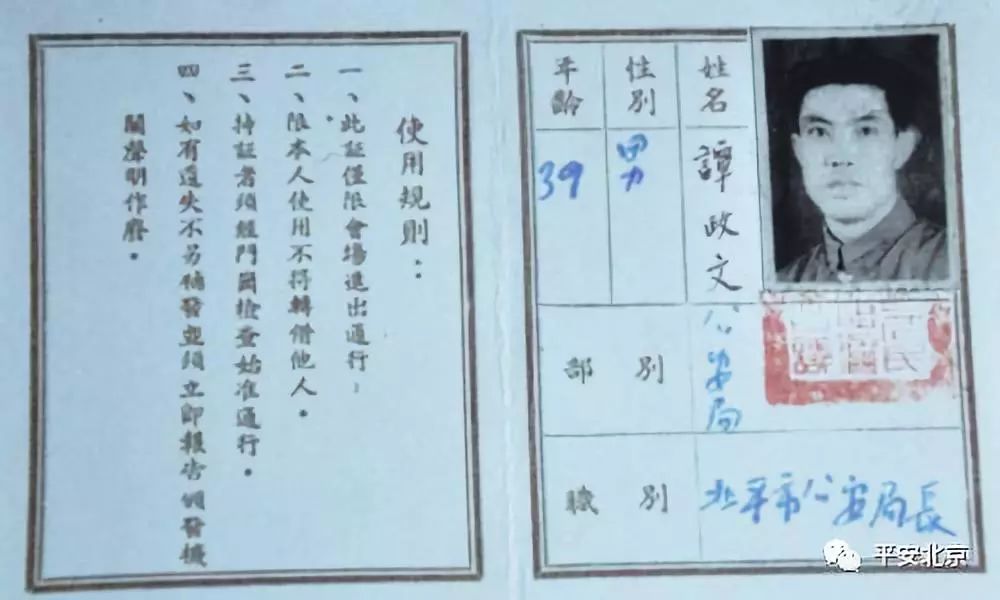 姓名
譚政文
性別
男
年齡
39
部別
公安局
職別
北平市公安局長
使用規則：
一、此証僅限會場進出通行；
二、限本人使用不得轉借他人。
三、持証者須經門崗檢查始准通行。
四、如有遺失不另補發並須立即報告頒發機
關聲明作廢。
平安北京